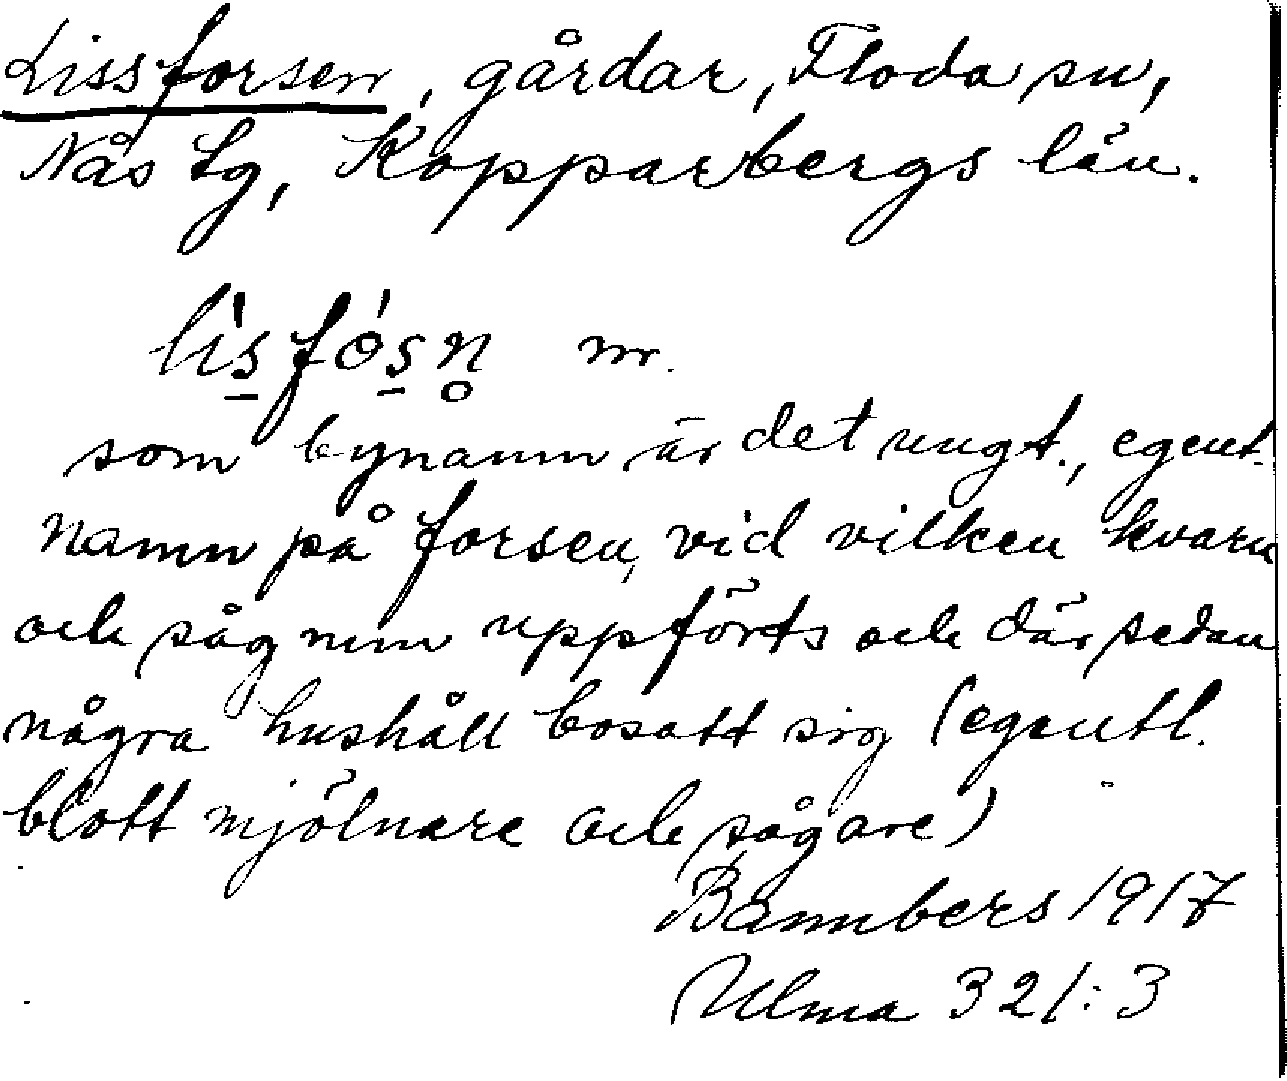 Lissforsen, gårdar, Floda sn,
Nås tg, Kopparbergs län.
li̍s̠fó̍s̠n̥ m.
som bynamn är det ungt., egentl.
namn på forsen, vid vilken kvarn
och såg nm uppförts och där sedan
några hushåll bosatt sig (egentl.
blott mjölnare och sågare)
Bannbers 1917
Ulma 321:3